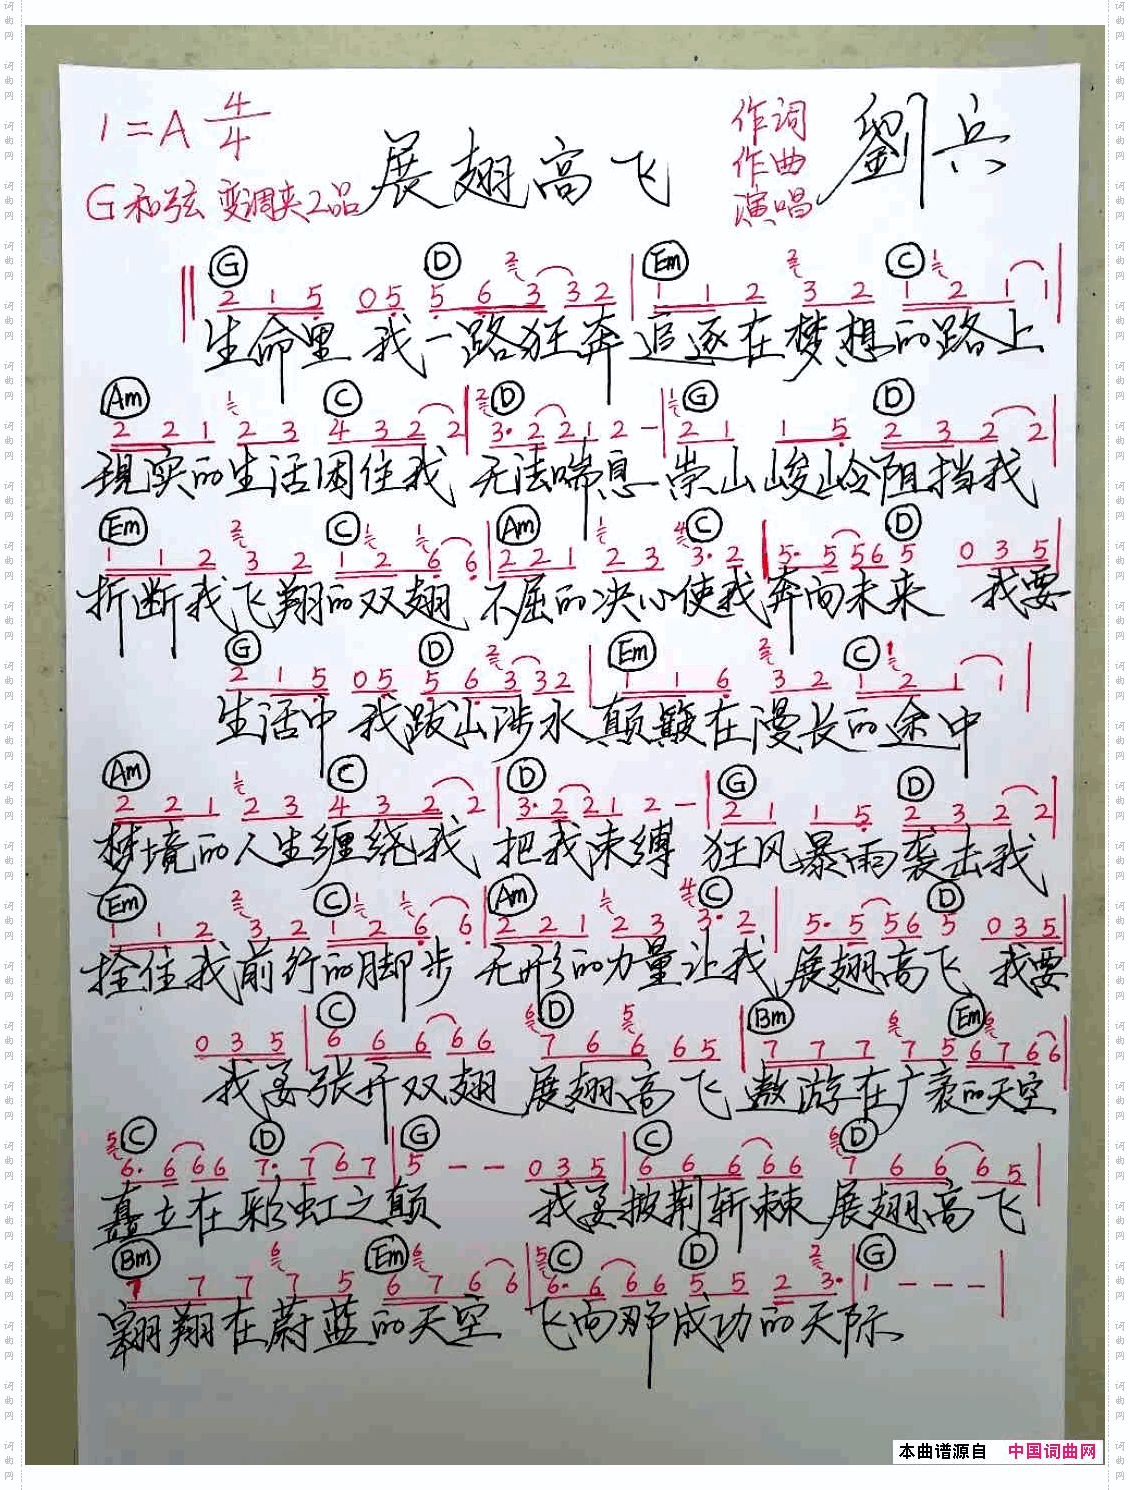 1=A 4/4
展翅高飞
作词
作曲
演唱
劉兵
G和弦 变调夹2品
G D Em C
2 1 5 0 5 5 6 3 3 2 1 1 2 3 2 1 2 1 1
生命里 我一路狂奔 追逐在梦想的路上
Am C D G D
2 2 1 2 3 4 3 2 2 3· 2 2 1 2 - 2 1 1 5 2 3 2 2
現实的生活困住我 无法喘息 崇山峻岭阻挡我
Em C Am C D
1 1 2 3 2 1 2 6 6 2 2 1 2 3 3· 2 5· 5 5 6 5 0 3 5
折断我飞翔的双翅 不屈的决心使我奔向未来 我要
G D Em C
2 1 5 0 5 5 6 3 3 2 1 1 6 3 2 1 2 1 1
生活中 我跋山涉水 颠簸在漫长的途中
Am C D G D
2 2 1 2 3 4 3 2 2 3· 2 2 1 2 - 2 1 1 5 2 3 2 2
梦境的人生缠绕我 把我束缚 狂风暴雨袭击我
Em C Am C D
1 1 2 3 2 1 2 6 6 2 2 1 2 3 3· 2 5· 5 5 6 5 0 3 5
拴住我前行的脚步 无形的力量让我 展翅高飞 我要
C D Bm Em
0 3 5 6 6 6 6 6 7 6 6 6 5 7 7 7 7 5 6 7 6 6
我要张开双翅 展翅高飞 遨游在广袤的天空
C D G C D
6· 6 6 6 7· 7 6 7 5 - - 0 3 5 6 6 6 6 6 7 6 6 6 5
矗立在彩虹之颠 我要披荆斩棘 展翅高飞
Bm Em C D G
7 7 7 7 5 6 7 6 6 6· 6 6 6 5 5 2 3· 1 - - -
翱翔在蔚蓝的天空 飞向那成功的天际
本曲谱源自 中国词曲网